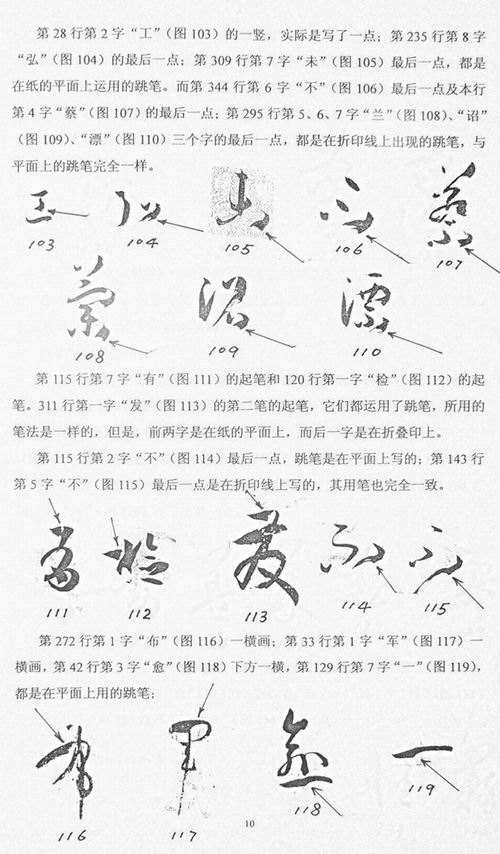 第 28 行第 2 字“工”（图 103）的一竖，实际是写了一点；第 235 行第 8 字
“弘”（图 104）的最后一点；第 309 行第 7 字“未”（图 105）最后一点，都是
在纸的平面上运用的跳笔。而第 344 行第 6 字“不”（图 106）最后一点及本行
第 4 字“蔡”（图 107）的最后一点；第 295 行第 5、6、7 字“兰”（图 108）、“诏”
（图 109）、“漂”（图 110）三个字的最后一点，都是在折印线上出现的跳笔，与
平面上的跳笔完全一样。
103 104 105 106 107
108 109 110
第 115 行第 7 字“有”（图 111）的起笔和 120 行第一字“检”（图 112）的起
笔。311 行第一字“发”（图 113）的第二笔的起笔，它们都运用了跳笔，所用的
笔法是一样的，但是，前两字是在纸的平面上，而后一字是在折叠印上。
第 115 行第 2 字“不”（图 114）最后一点，跳笔是在平面上写的；第 143 行
第 5 字“不”（图 115）最后一点是在折印线上写的，其用笔也完全一致。
111 112 113 114 115
第 272 行第 1 字“布”（图 116）一横画；第 33 行第 1 字“军”（图 117）一
横画，第 42 行第 3 字“愈”（图 118）下方一横，第 129 行第 7 字“一”（图 119），
都是在平面上用的跳笔；
116 117 118 119
10